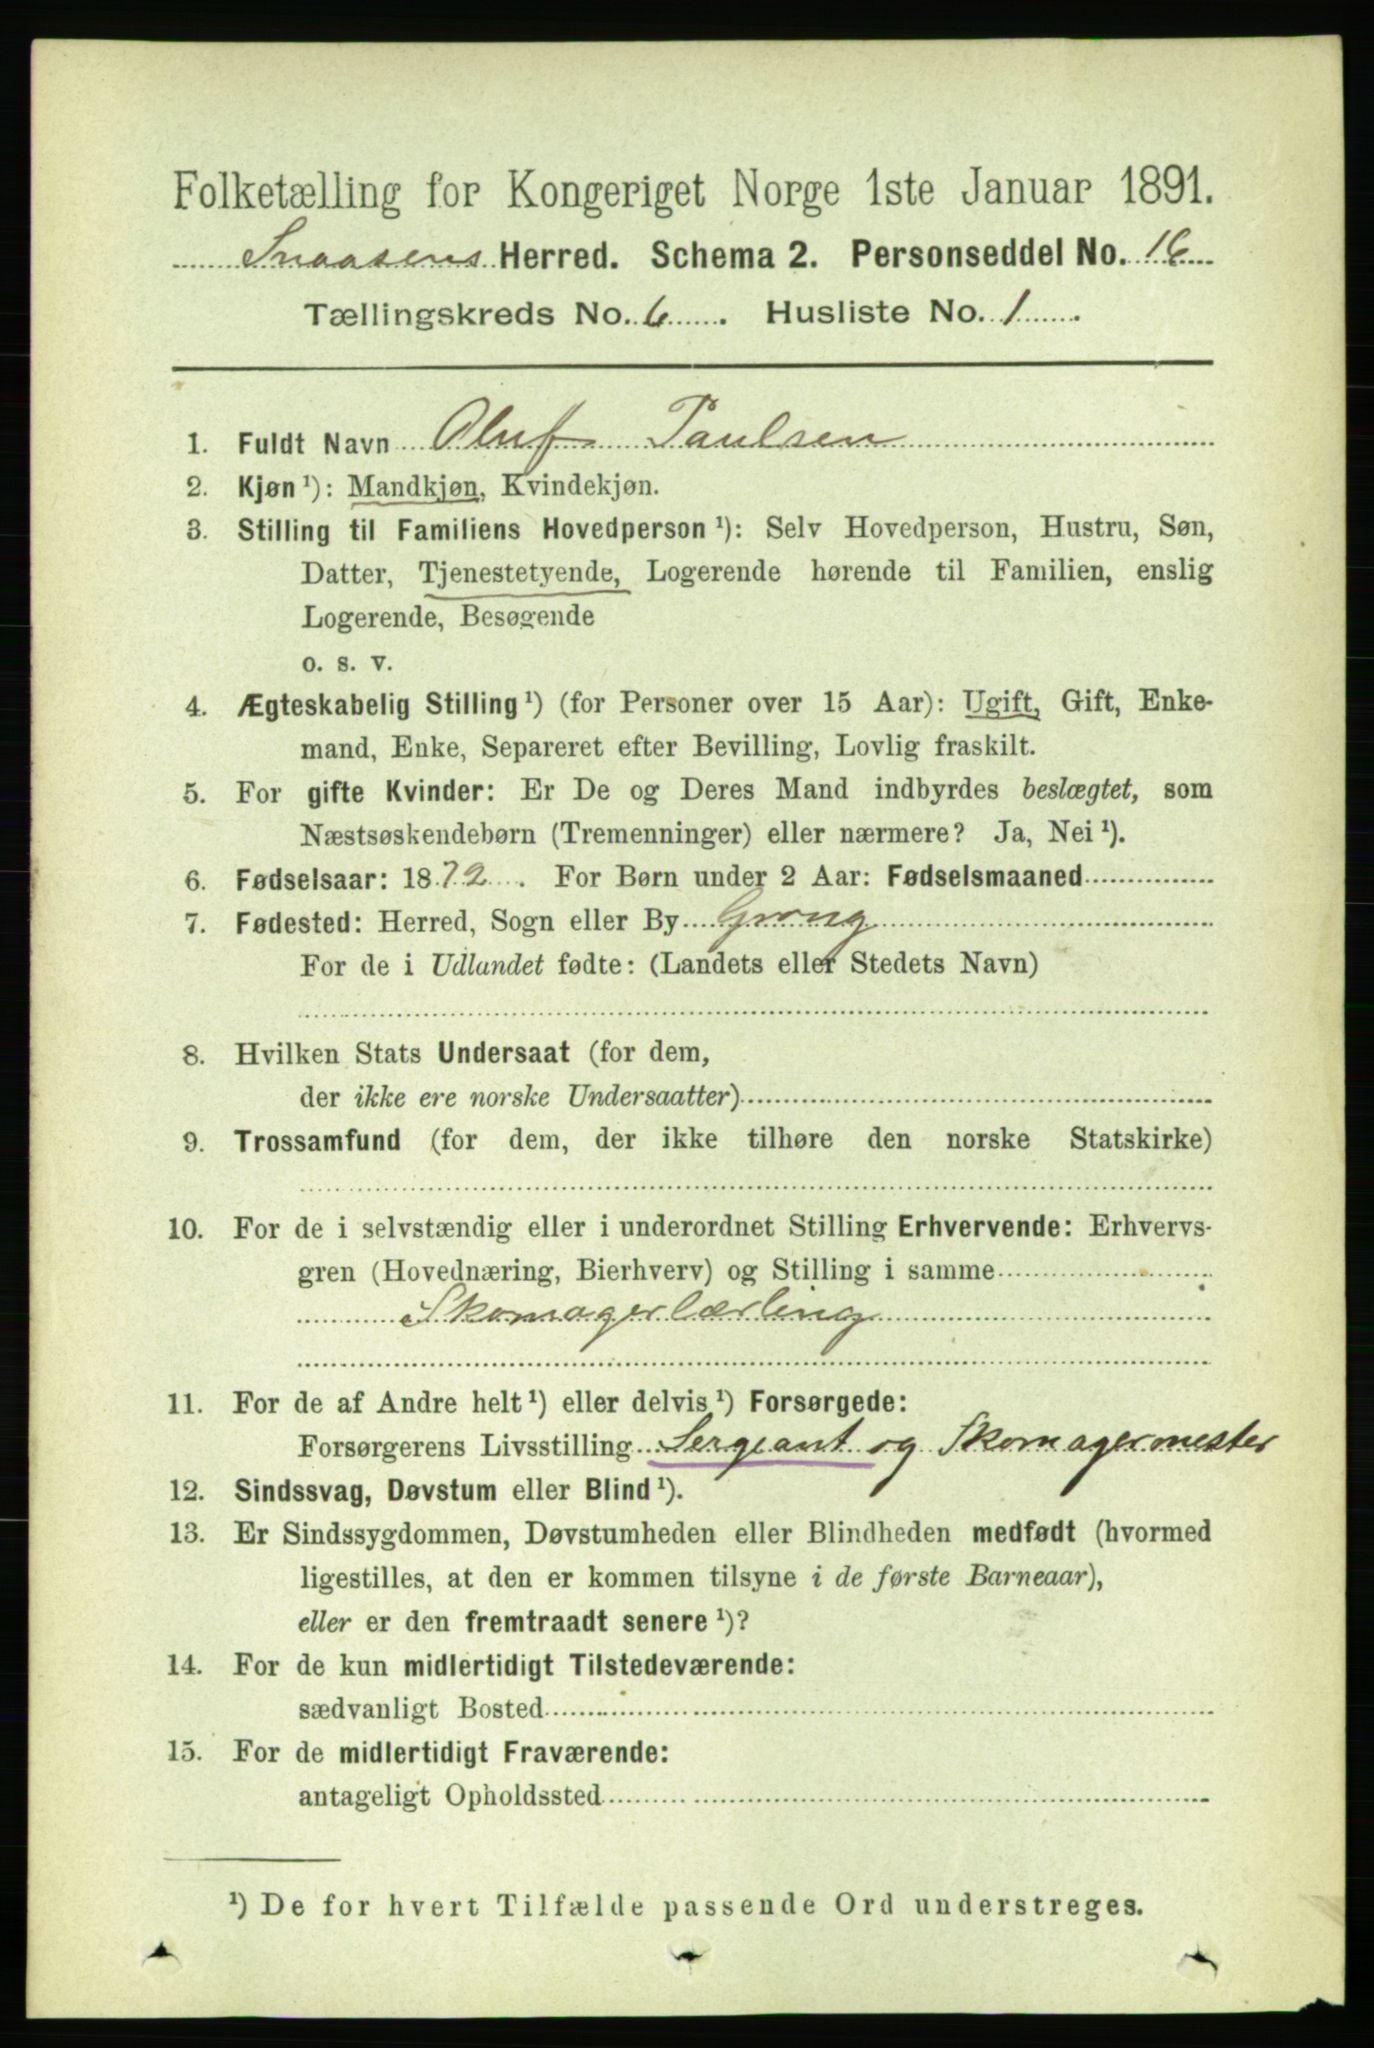 Folketælling for Kongeriget Norge 1ste Januar 1891.
Snaasens Herred. Schema 2. Personseddel No. 16
Tællingskreds No. 6. Husliste No. 1.
1. Fuldt Navn Oluf Paulsen
2. Kjøn ¹): Mandkjøn, Kvindekjøn.
3. Stilling til Familiens Hovedperson ¹): Selv Hovedperson, Hustru, Søn,
Datter, Tjenestetyende, Logerende hørende til Familien, enslig
Logerende, Besøgende
o. s. v.
4. Ægteskabelig Stilling ¹) (for Personer over 15 Aar): Ugift, Gift, Enke-
mand, Enke, Separeret efter Bevilling, Lovlig fraskilt.
5. For gifte Kvinder: Er De og Deres Mand indbyrdes beslægtet, som
Næstsøskendebørn (Tremenninger) eller nærmere? Ja, Nei ¹).
6. Fødselsaar: 1872. For Børn under 2 Aar: Fødselsmaaned
7. Fødested: Herred, Sogn eller By Grong
For de i Udlandet fødte: (Landets eller Stedets Navn)
8. Hvilken Stats Undersaat (for dem,
der ikke ere norske Undersaatter)
9. Trossamfund (for dem, der ikke tilhøre den norske Statskirke)
10. For de i selvstændig eller i underordnet Stilling Erhvervende: Erhvervs-
gren (Hovednæring, Bierhverv) og Stilling i samme
Skomagerlærling
11. For de af Andre helt ¹) eller delvis ¹) Forsørgede:
Forsørgerens Livsstilling Sergeant og Skomagermester
12. Sindssvag, Døvstum eller Blind ¹).
13. Er Sindssygdommen, Døvstumheden eller Blindheden medfødt (hvormed
ligestilles, at den er kommen tilsyne i de første Barneaar),
eller er den fremtraadt senere ¹)?
14. For de kun midlertidigt Tilstedeværende:
sædvanligt Bosted
15. For de midlertidigt Fraværende:
antageligt Opholdssted
¹) De for hvert Tilfælde passende Ord understreges.